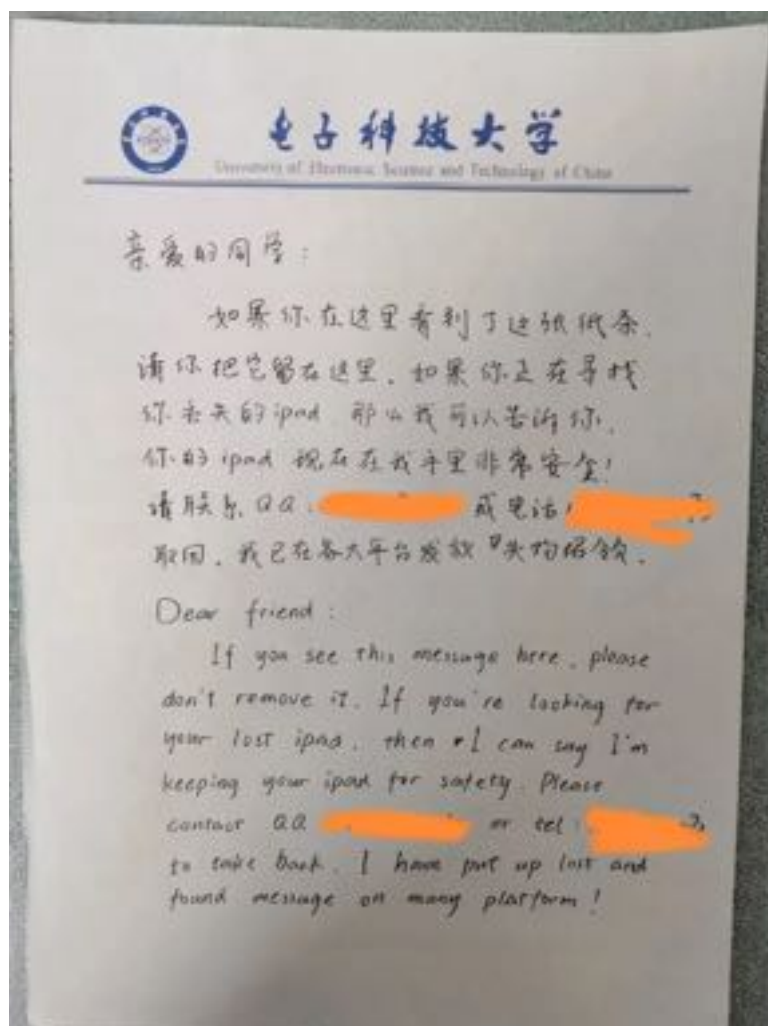 电子科技大学
University of Electronic Science and Technology of China
亲爱的同学：
如果你在这里看到了这张纸条，
请你把它留在这里，如果你正在寻找
你丢失的ipad，那么我可以告诉你，
你的ipad 现在在我手里非常安全！
请联系QQ： 或电话：
取回，我已在各大平台发放 失物招领．
Dear friend：
If you see this message here, please
don't remove it. If you're looking for
your lost ipad, then I can say I'm
keeping your ipad for safety. Please
contact QQ or tel：
to take back. I have put up lost and
found message on many platform！